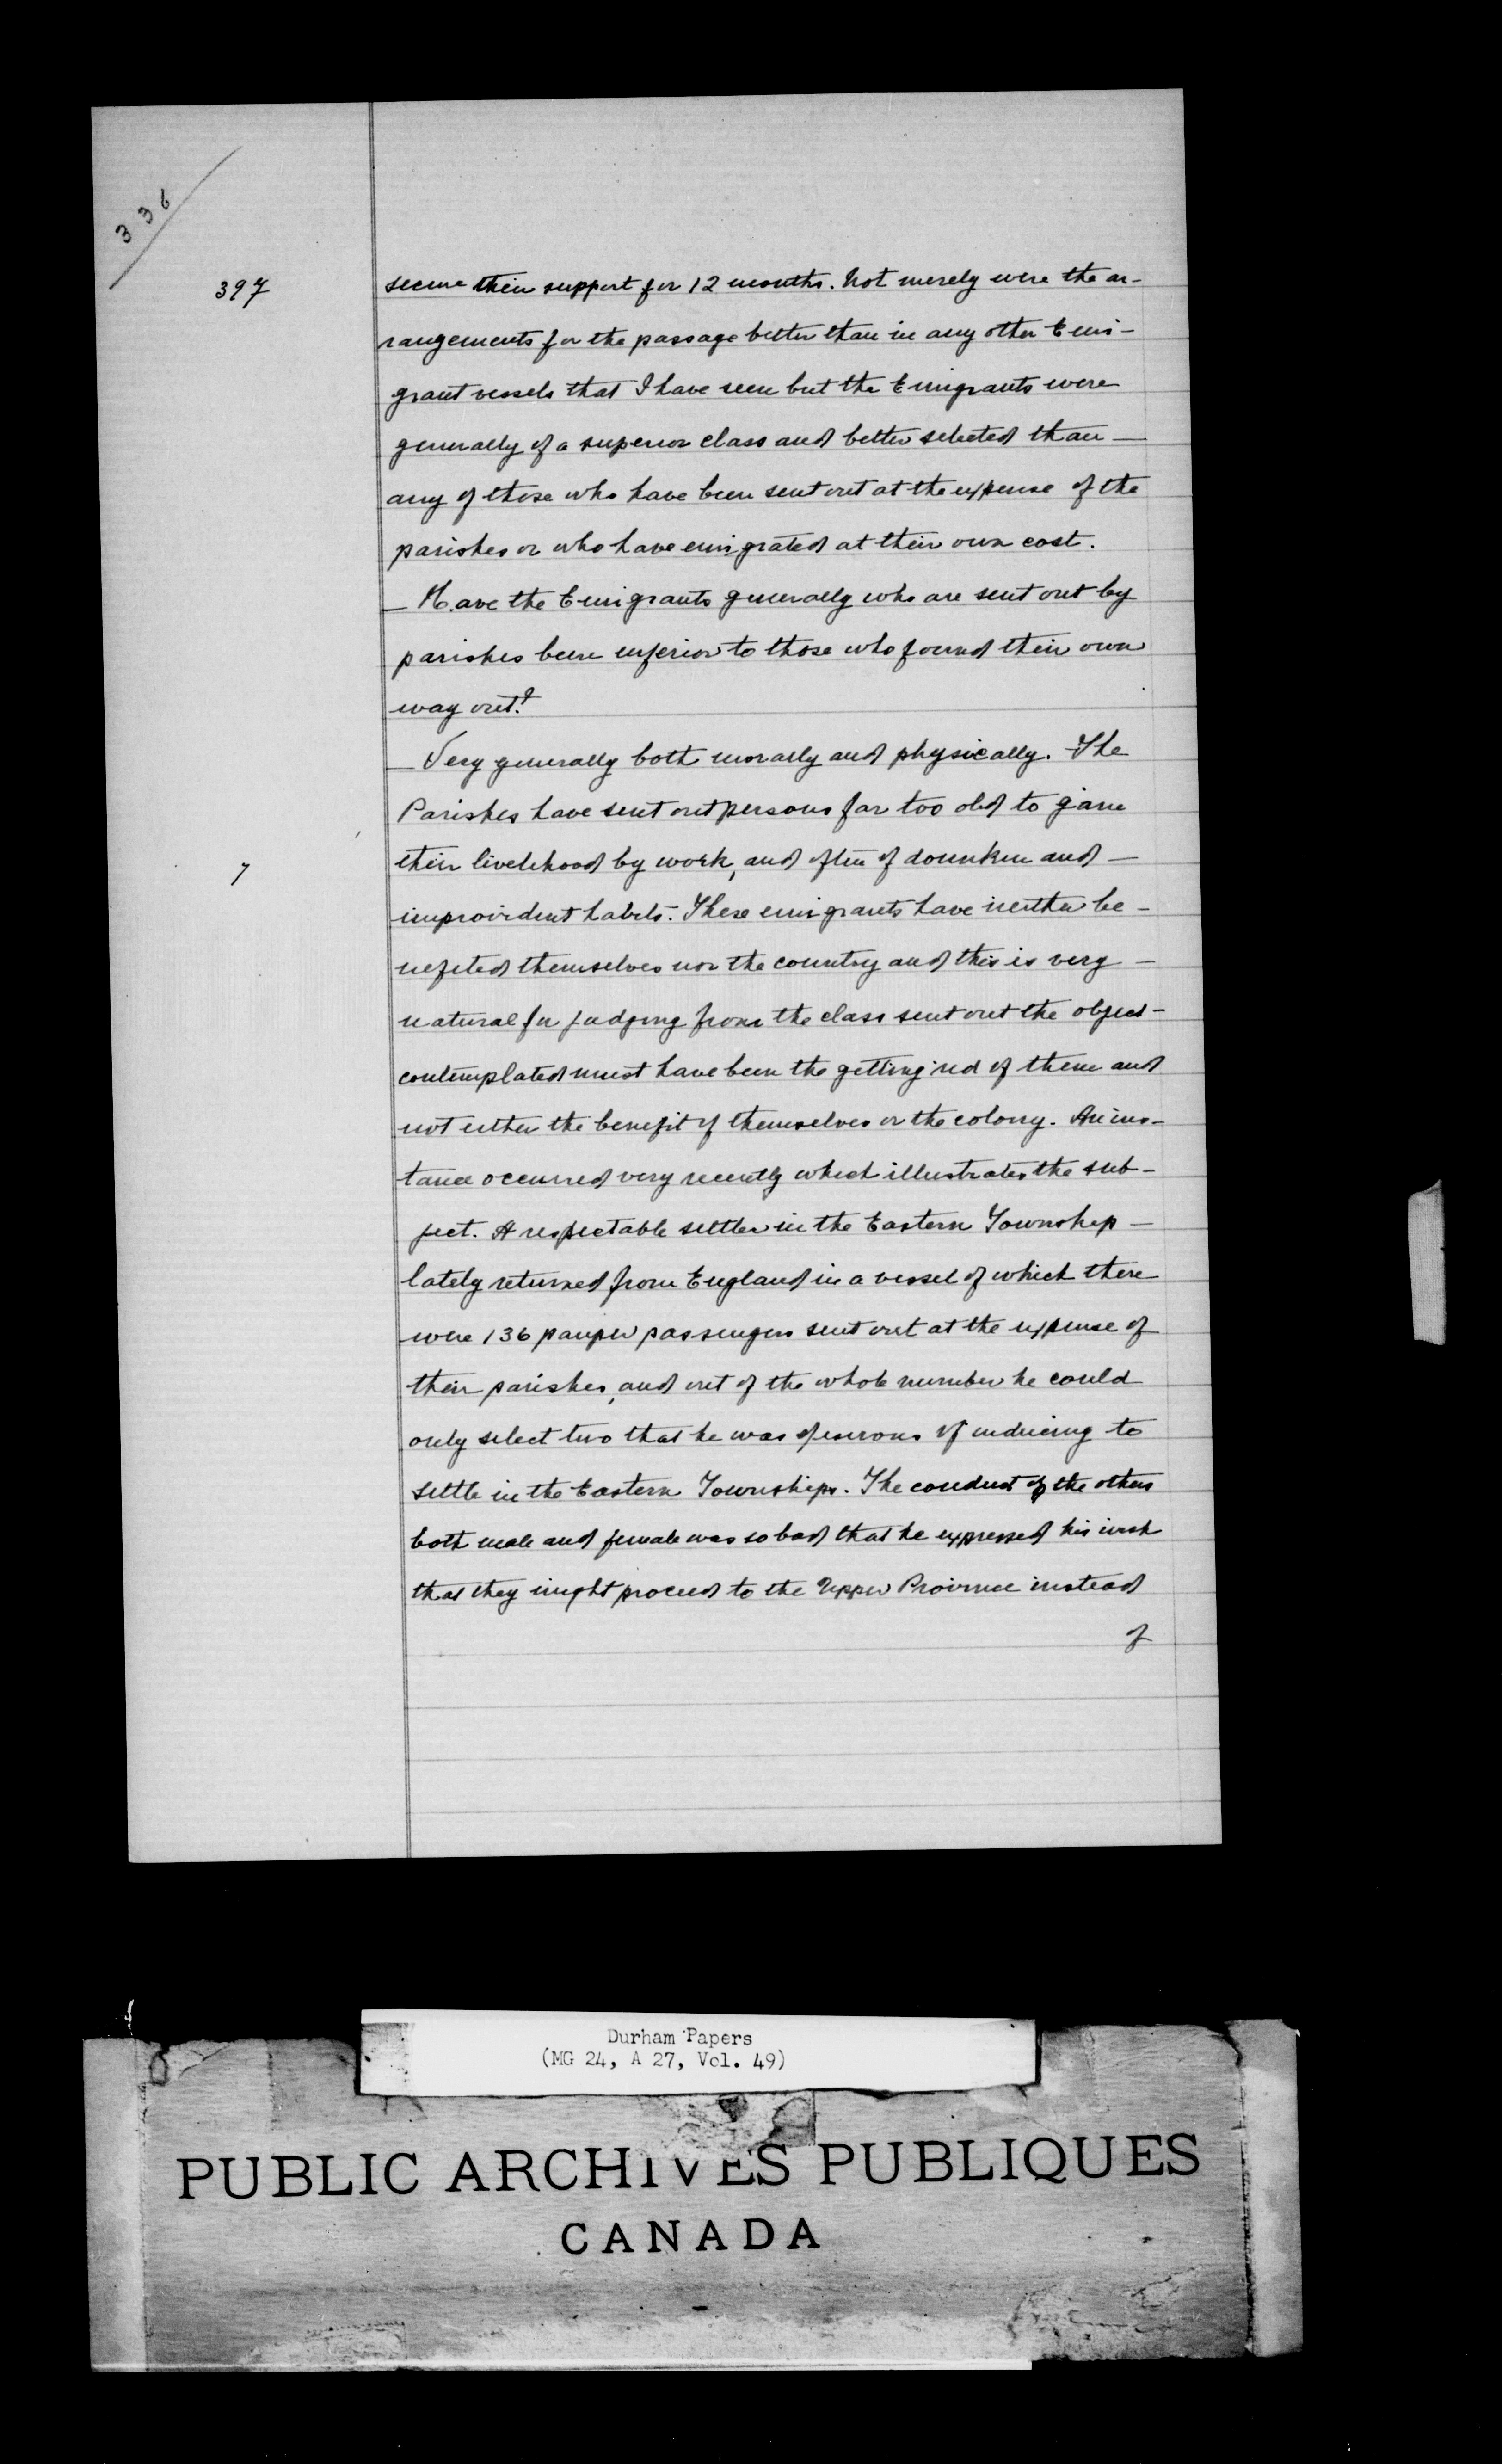 336
397
secure their support for 12 months. Not merely were the ar-
rangements for the passage better than in any other Emi-
grant vessels that I have seen but the Emigrants were
generally of a superior class and better selected than —
any of those who have been sent out at the expense of the
parishes or who have emigrated at their own cost.
— Have the Emigrants generally who are sent out by
parishes been inferior to those who found their own
way out?
— Very generally both morally and physically. The
Parishes have sent out persons far too old to gain
7
their livelihood by work, and often of drunken and —
improvident habits. These emigrants have neither be-
nefited themselves nor the country and this is very —
natural for judging from the class sent out the object —
contemplated must have been the getting rid of them and
not either the benefit of themselves or the colony. An ins-
tance occurred very recently which illustrates the sub-
ject. A respectable settler in the Eastern Township —
lately returned from England in a vessel of which there
were 136 pauper passengers sent out at the expense of
their parishes, and out of the whole number he could
only select two that he was desirous of inducing to
settle in the Eastern Townships. The conduct of the others
both male and female was so bad that he expressed his wish
that they might proceed to the Upper Province instead
of
Durham Papers
(MG 24, A 27, Vol. 49)
PUBLIC ARCHIVES PUBLIQUES
CANADA